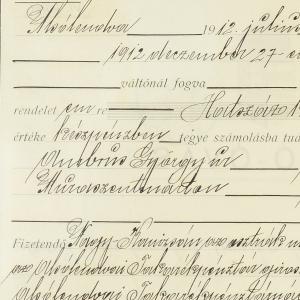 Alsólendva 1912 július
1912 deczember 27-é
váltónál fogva
rendelet em re Hatszáz 1
értéke készpénzben tegye számolásba tud
Ambrus György úr
Muraszentmárton
Fizetendő Nagy-Kanizsán az osztrák m
az Alsólendvai Takarékpénztár giros
Alsólendvai Takarékpénztárnál